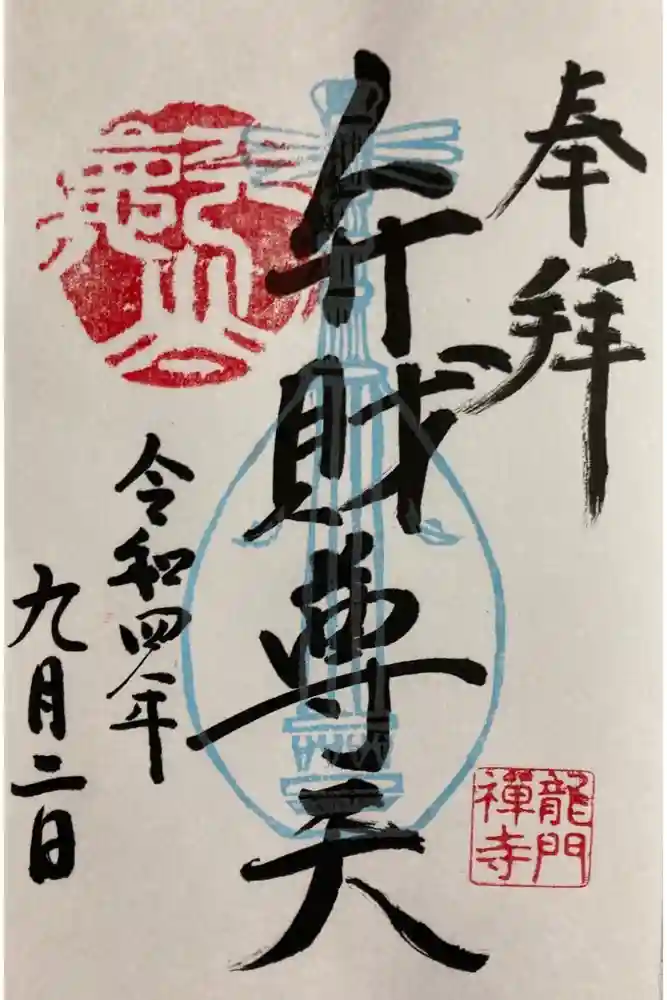 奉拝
弁財尊天
令和四年
九月二日
龍門
禅寺